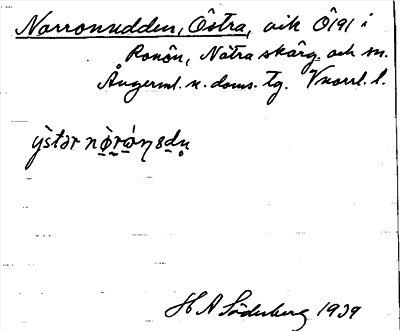 Norronudden, Östra, vik Ö 191 i
Ronön, Nätra skärg. och sn.
Ångerml. n. doms. tg. Vnorrl. l.
ỳstər
H A Söderberg 1939